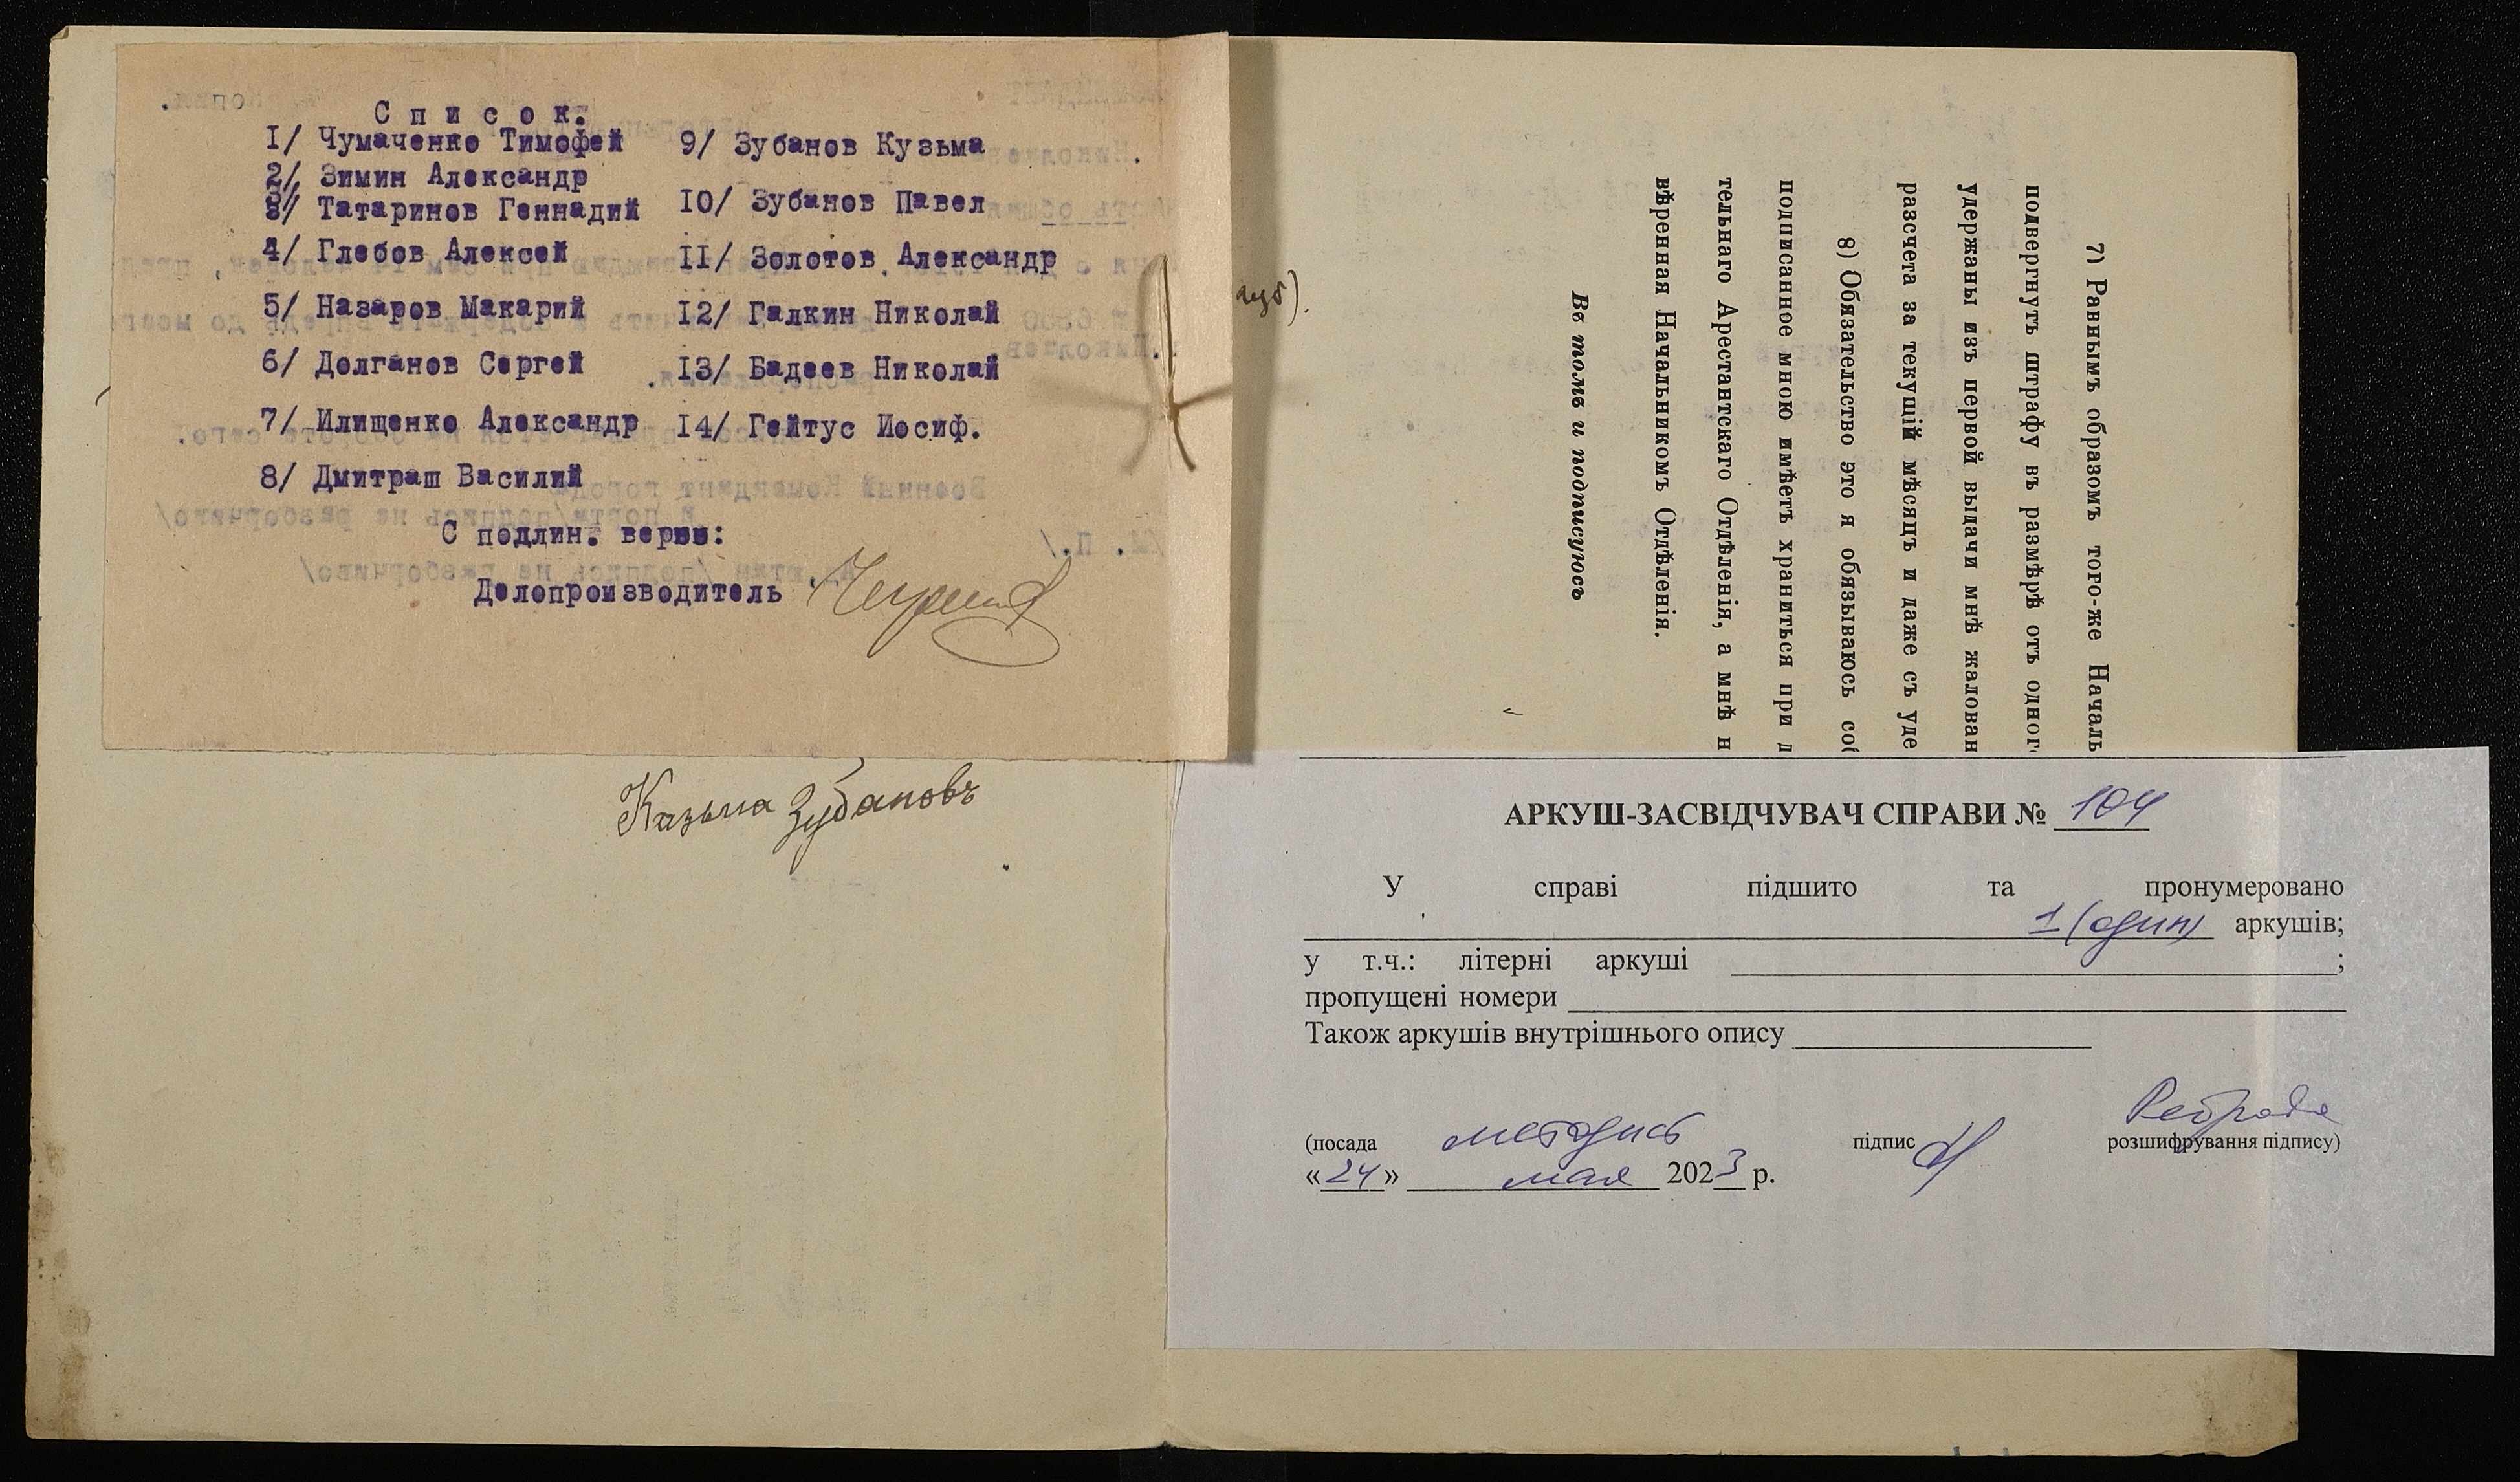 Список.
1/ Чумаченко Тимофей
2/ Зимин Александр
3/ Татаринов Геннадий
4/ Глебов Алексей
5/ Назаров Макарий
6/ Долганов Сергей
7/ Илищенко Александр
8/ Дмитраш Василий
9/ Зубанов Кузьма
10/ Зубанов Павел
11/ Золотов Александр
12/ Галкин Николай
13/ Бадеев Николай
14/ Гейтус Иосиф.
С подлин. верно:
Делопроизводитель
Казьма Зубановъ
7) Равнымъ образомъ того-же Началь
подвергнуть штрафу въ размѣрѣ отъ одног
удержаны изъ первой выдачи мнѣ жалован
разсчета за текущій мѣсяцъ и даже съ уде
8) Обязательство это я обязываюсь соб
подписанное мною имѣетъ храниться при д
тельнаго Арестантскаго Отдѣленія, а мнѣ н
вѣренная Начальникомъ Отдѣленія.
Въ томъ и подписуюсь
АРКУШ-ЗАСВІДЧУВАЧ СПРАВИ № 104
У справі підшито та пронумеровано
1 (один) аркушів;
у т.ч.: літерні аркуші ;
пропущені номери
Також аркушів внутрішнього опису
(посада методист підпис розшифрування підпису)
«24» мая 2023 р.